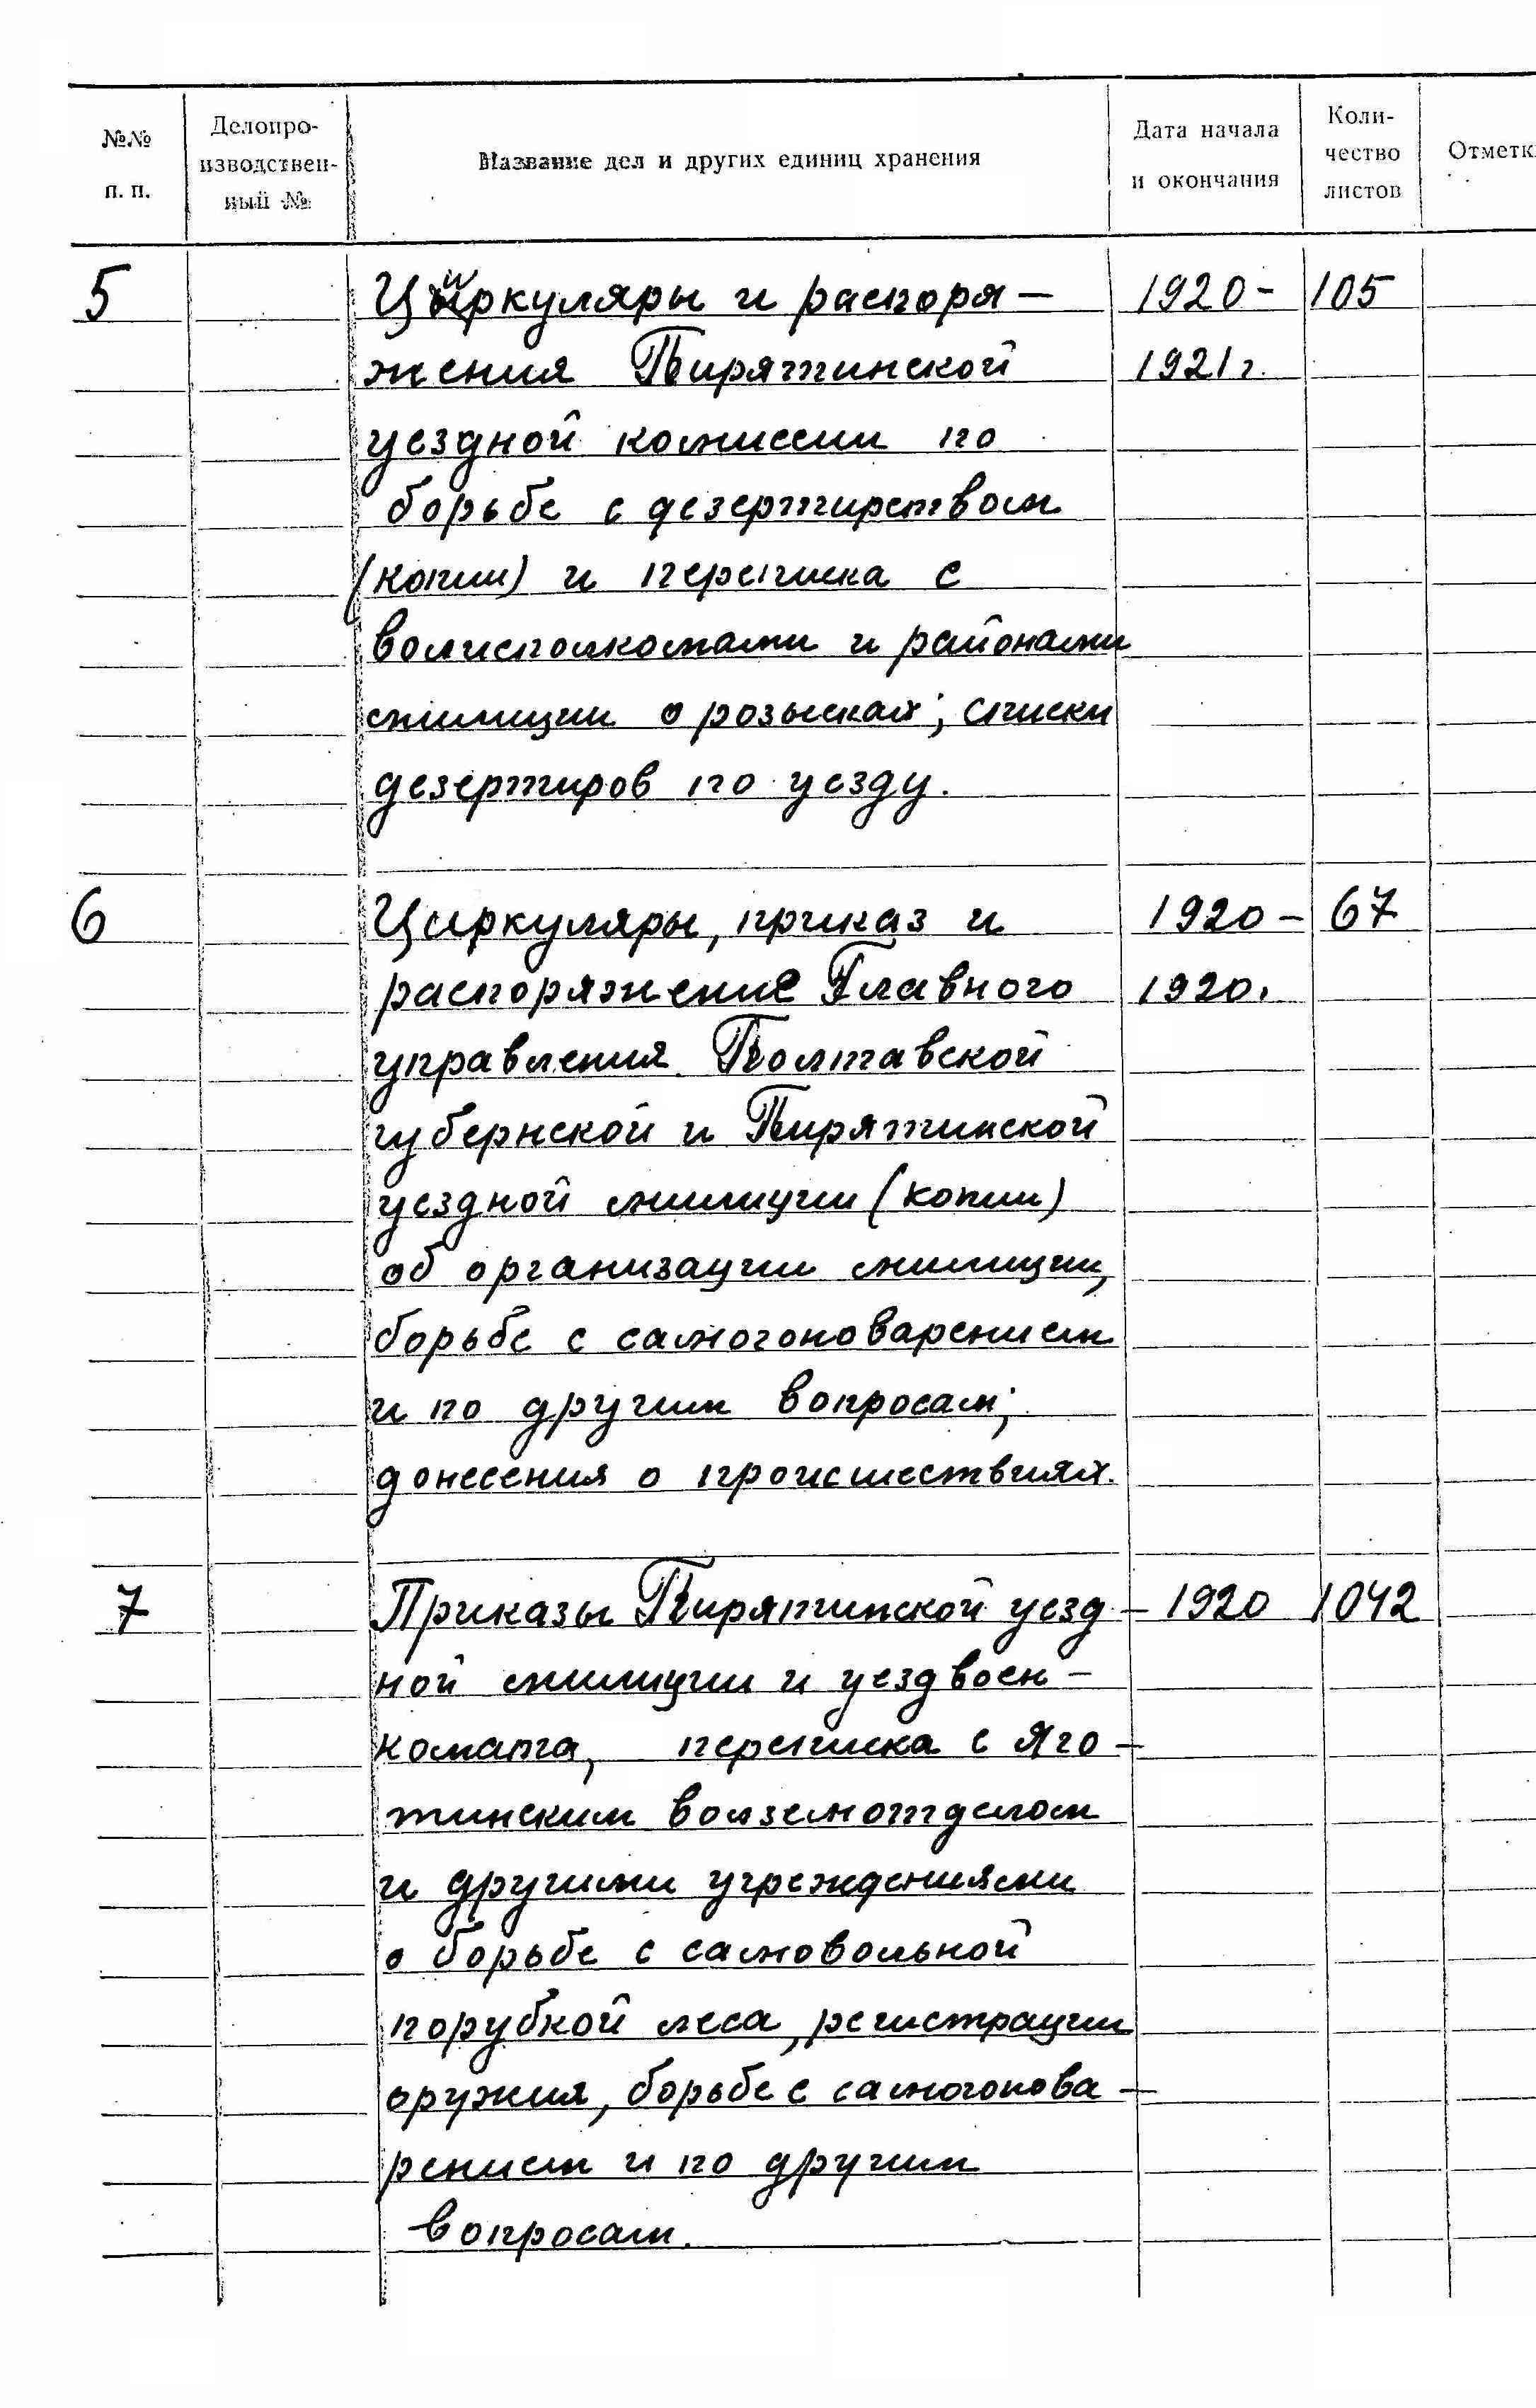 №№ п. п. Делопро- изводствен- ный № Название дел и других единиц хранения Дата начала и окончания Коли- чество листов Отметк
5 Циркуляры и распоря- 1920- 105
жения Пирятинской 1921 г.
уездной комиссии по
борьбе с дезертирством
(копии) и переписка с
волисполкомами и районами
милиции о розысках; списки
дезертиров по уезду.
6 Циркуляры, приказ и 1920- 67
распоряжение Главного 1920.
управления Полтавской
губернской и Пирятинской
уездной милиции (копии)
об организации милиции,
борьбе с самогоноварением
и по другим вопросам;
донесения о происшествиях.
7 Приказы Пирятинской уезд- 1920 1042
ной милиции и уездвоен-
комата, переписка с Яго-
тинским волземотделом
и другими учреждениями
о борьбе с самовольной
порубкой леса, регистрации
оружия, борьбе с самогонова-
рением и по другим
вопросам.